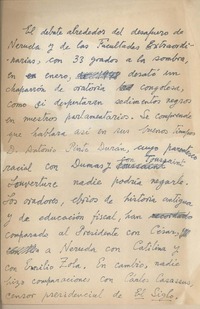 El debate alrededor del desafuero de
Neruda y de las Facultades Extraordi-
narias, con 33 grados a la sombra,
en enero, desató un
chaparrón de oratoria congolese,
como si despertaran sedimentos negros
en nuestros parlamentarios. Se comprende
que hablara así en sus buenos tiempos
D. Antonio Pinto Durán, cuyo parentesco
racial con Dumas y con Toussaint
Louverture nadie podría negarlo.
Los oradores, ebrios de historia antigua
y de educación fiscal, han
comparado al Presidente con César,
a Neruda con Catilina y
con Emilio Zola. En cambio, nadie
hizo comparaciones con Carlos Casassus,
censor presidencial de El Siglo.